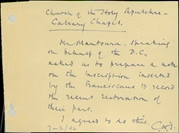 Church of the Holy Sepulchre -
Calvary Chapel.
Mr. Mantoura, speaking
on behalf of the D.C.
asked us to prepare a note
on the inscription inserted
by the Franciscans to record
the recent restoration of
their part.
I agreed to do this.